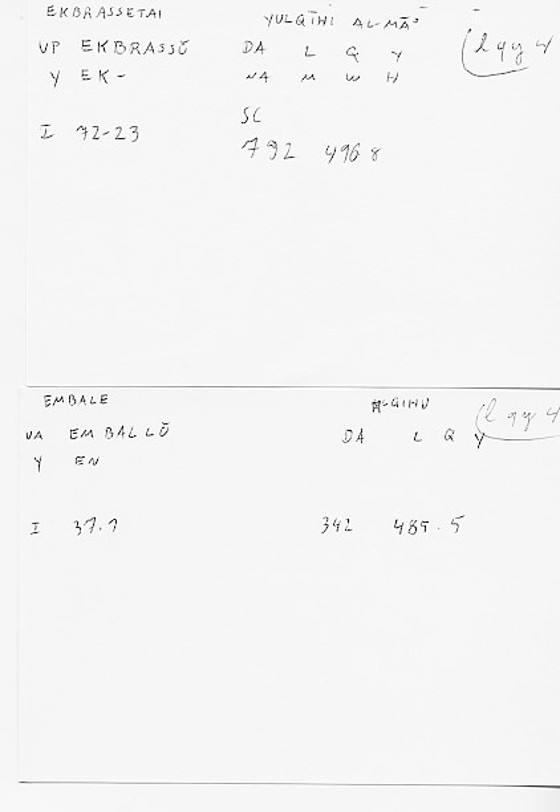 EKBRASSETAI YULQĪHI AL-MĀʾ
VP EKBRASSŌ DA L Q Y (l q y 4
Y EK- NA M W H
SC
I 72-23 792 4968
EMBALE ALQIHU (l q y 4
VA EMBALLŌ DA L Q Y
Y EN
I 37.7 342 485.5